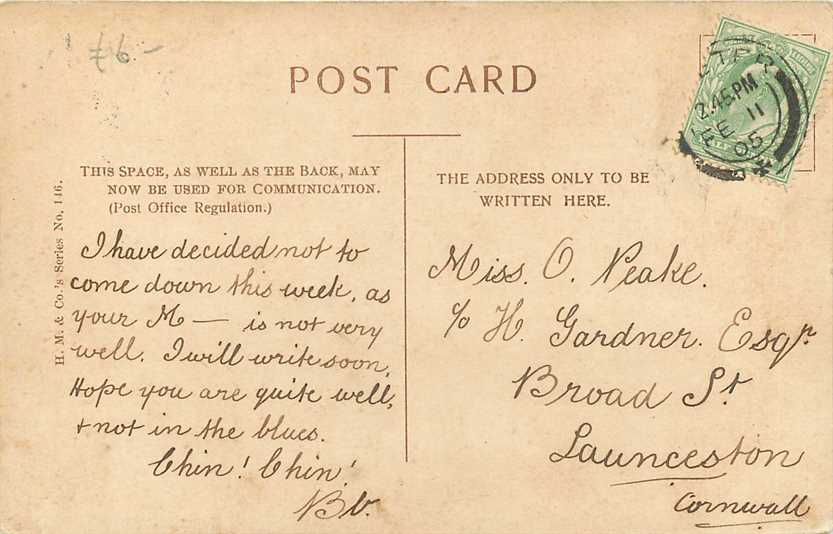 £6-
POST CARD
THIS SPACE, AS WELL AS THE BACK, MAY
NOW BE USED FOR COMMUNICATION.
(Post Office Regulation.)
H. M. & Co.'s Series No. 146.
I have decided not to
come down this week, as
your M — is not very
well. I will write soon,
Hope you are quite well,
+ not in the blues.
Chin! Chin!
THE ADDRESS ONLY TO BE
WRITTEN HERE.
Miss. O. Peake.
c/o H. Gardner. Esqr.
Broad St.
Launceston
Cornwall
2.45 PM
FE 11
05